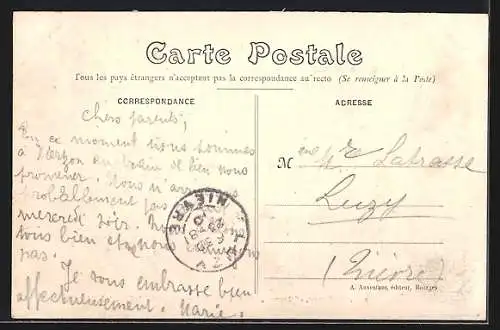 Carte Postale
Tous les pays étrangers n'acceptent pas la correspondance au recto (Se renseigner à la Poste)
CORRESPONDANCE
ADRESSE
Chers parents,
En ce moment nous sommes
à Vierzon en train de bien nous
promener. Nous n'
probablement pas
mercredi soir.
tous bien et nous
pas.
Je vous embrasse bien
affectueusement. Marie.
M
Latrasse
Luzy
(Nièvre)
LUZY
NIEVRE
A. Auxenfans, éditeur, Bourges